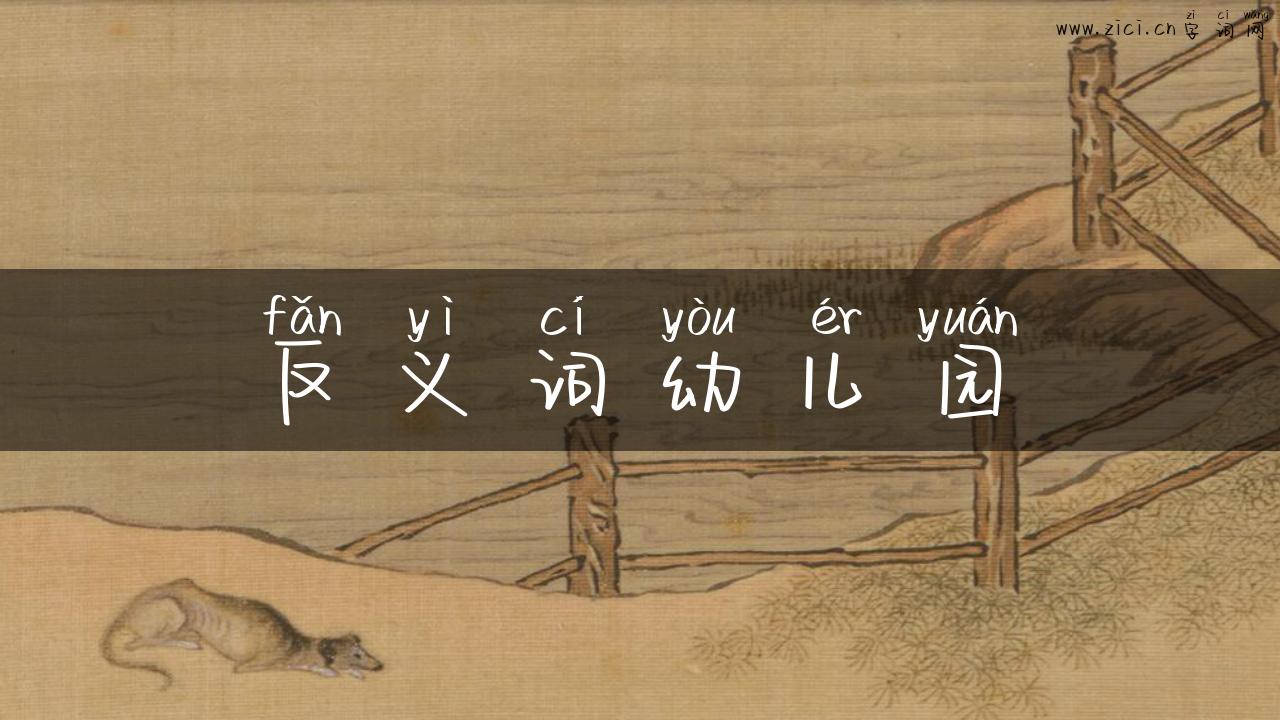 zì cí wǎng
www.zici.cn 字词网
fǎn yì cí yòu ér yuán
反义词幼儿园